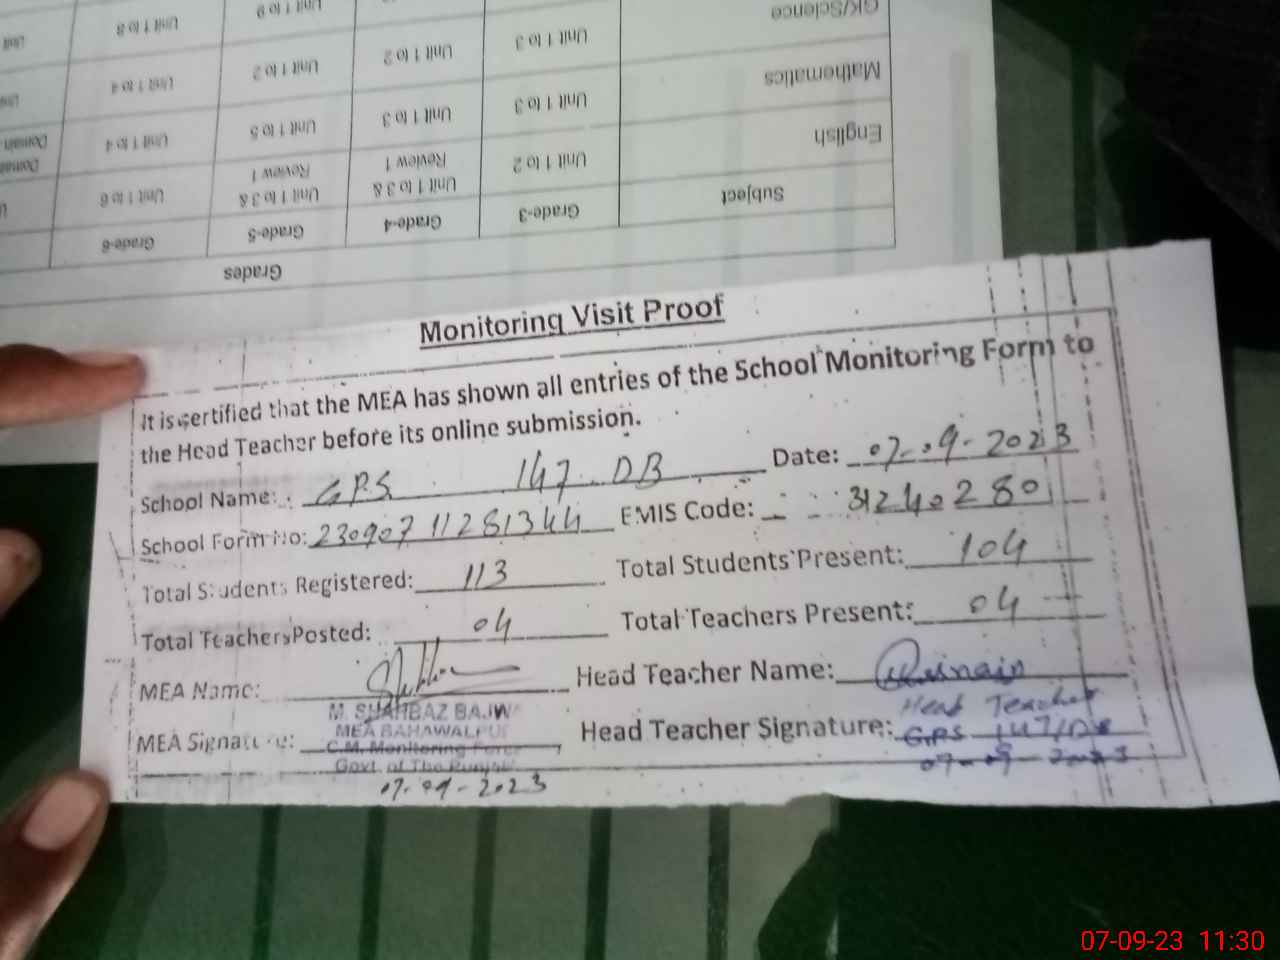 GK/Science Unit 1 to 9 Unit 1 to 8
Mathematics Unit 1 to 3 Unit 1 to 2 Unit 1 to 2 Unit 1 to 4
English Unit 1 to 3 Unit 1 to 3 Unit 1 to 5 Unit 1 to 4 Domain
Unit 1 to 2 Unit 1 to 3 & Review 1 Unit 1 to 3 & Review 1 Unit 1 to 6
Subject Grade-3 Grade-4 Grade-5 Grade-6
Grades
Monitoring Visit Proof
It is certified that the MEA has shown all entries of the School Monitoring Form to
the Head Teacher before its online submission.
School Name: GPS 147 DB Date: 07-09-2023
School Form No: 23090711281344 EMIS Code: 31240280
Total Students Registered: 113 Total Students Present: 104
Total Teachers Posted: 04 Total Teachers Present: 04
MEA Name: Head Teacher Name:
M. SHAHBAZ BAJW
MEA BAHAWALPUR Head Teacher
MEA Signature: C.M. Monitoring Force Head Teacher Signature: GPS 147/DB
Govt. of The Punjab 07-09-2023
07-09-2023
07-09-23 11:30